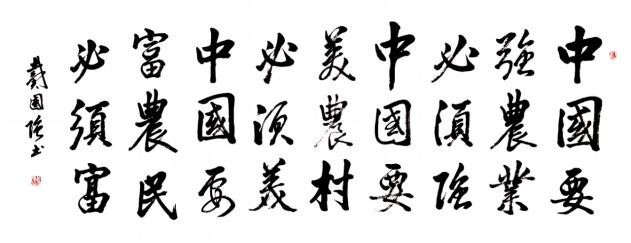 中國要
強農業
必須強
中國要
美農村
必須美
中國要
富農民
必須富
戴國強書